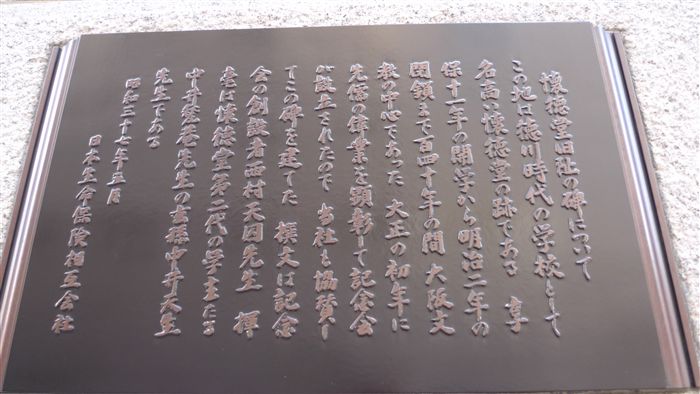 懐徳堂旧阯の碑について
この地は徳川時代の学校として
名高い懐徳堂の跡である 享
保十一年の開学から明治二年の
閉鎖まで百四十年の間 大阪文
教の中心であった 大正の初年に
先儒の偉業を顕彰して記念会
が設立されたので 当社も協賛し
てこの碑を建てた 撰文は記念
会の創設者西村天囚先生 揮
毫は懐徳堂第二代の学主たる
中井甃菴先生の玄孫中井天生
先生である
昭和三十七年五月
日本生命保険相互会社